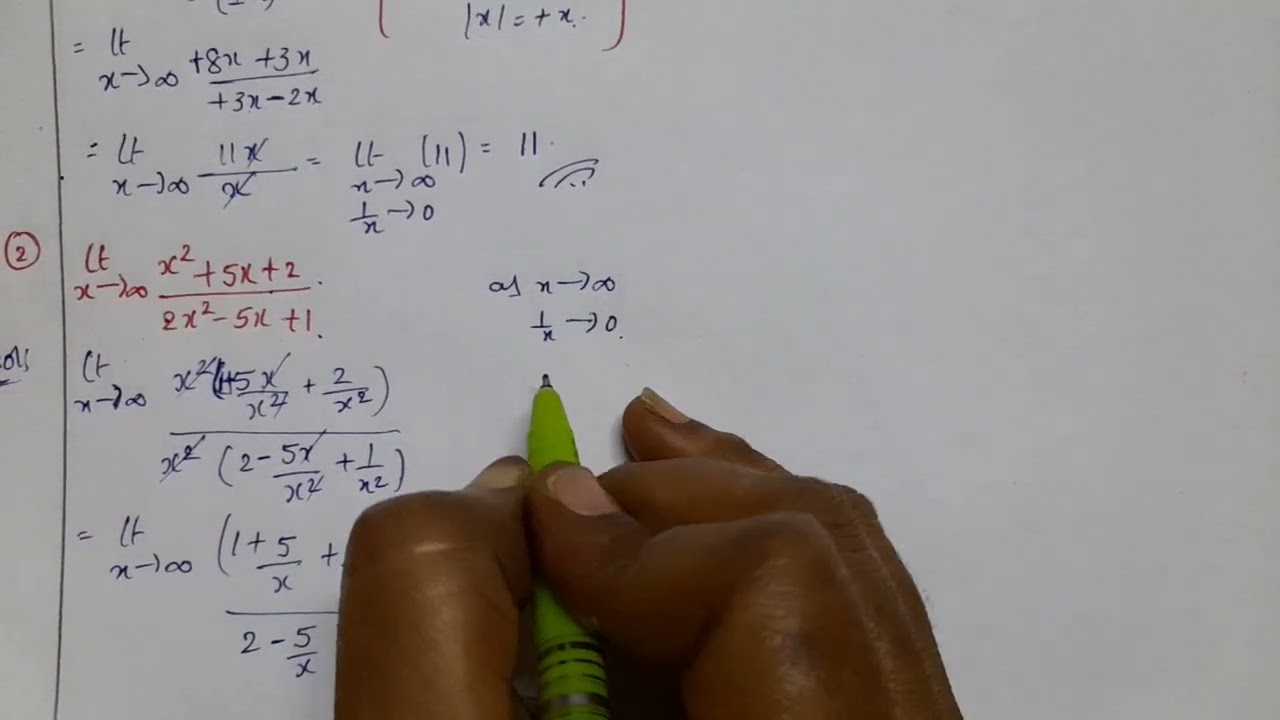 |x| = + x.
= lt x→∞ +8x +3x / +3x - 2x
= lt x→∞ 11x / x = lt x→∞ 1/x → 0 (11) = 11.
② lt x→∞ x² + 5x + 2 / 2x² - 5x + 1.
as x→∞
1/x → 0.
lt x→∞ x² (1+ 5x/x² + 2/x²) / x² (2 - 5x/x² + 1/x²)
= lt x→∞ (1 + 5/x + / 2 - 5/x